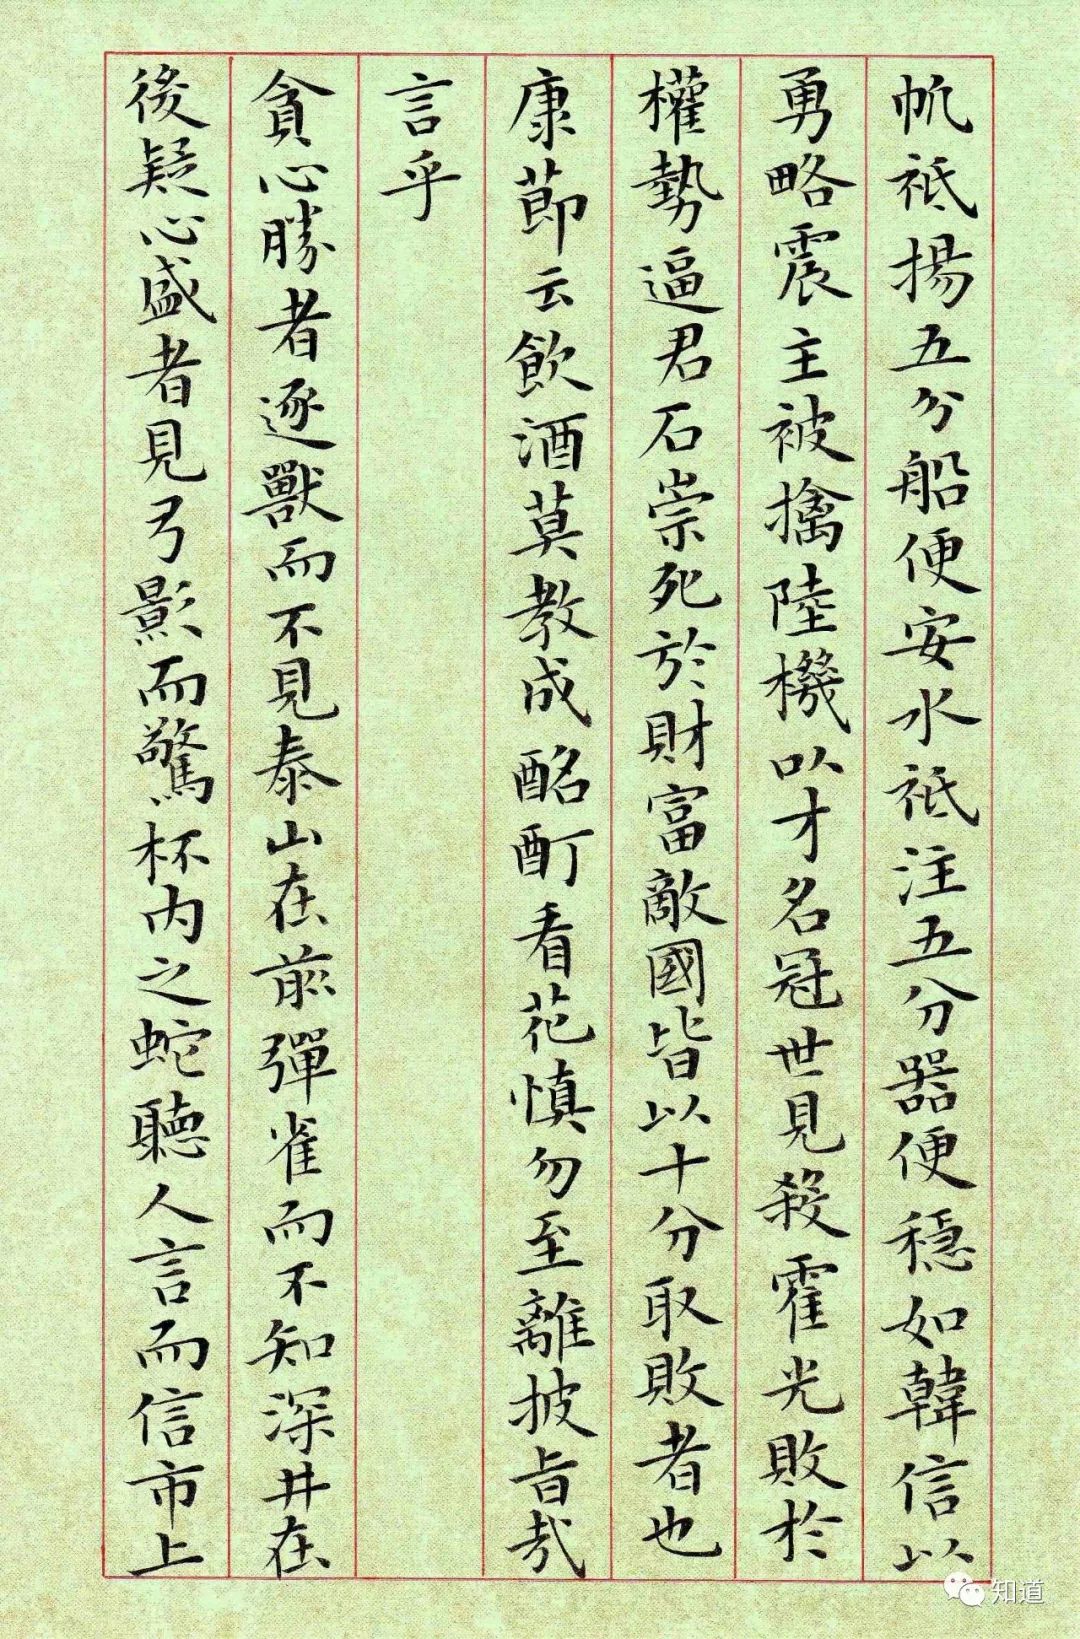 帆祗揚五分船便安水祗注五分器便穩如韓信以
勇略震主被擒陸機以才名冠世見殺霍光敗於
權勢逼君石崇死於財富敵國皆以十分取敗者也
康節云飲酒莫教成酩酊看花慎勿至離披旨哉
言乎
貪心勝者逐獸而不見泰山在前彈雀而不知深井在
後疑心盛者見弓影而驚杯內之蛇聽人言而信市上
知道